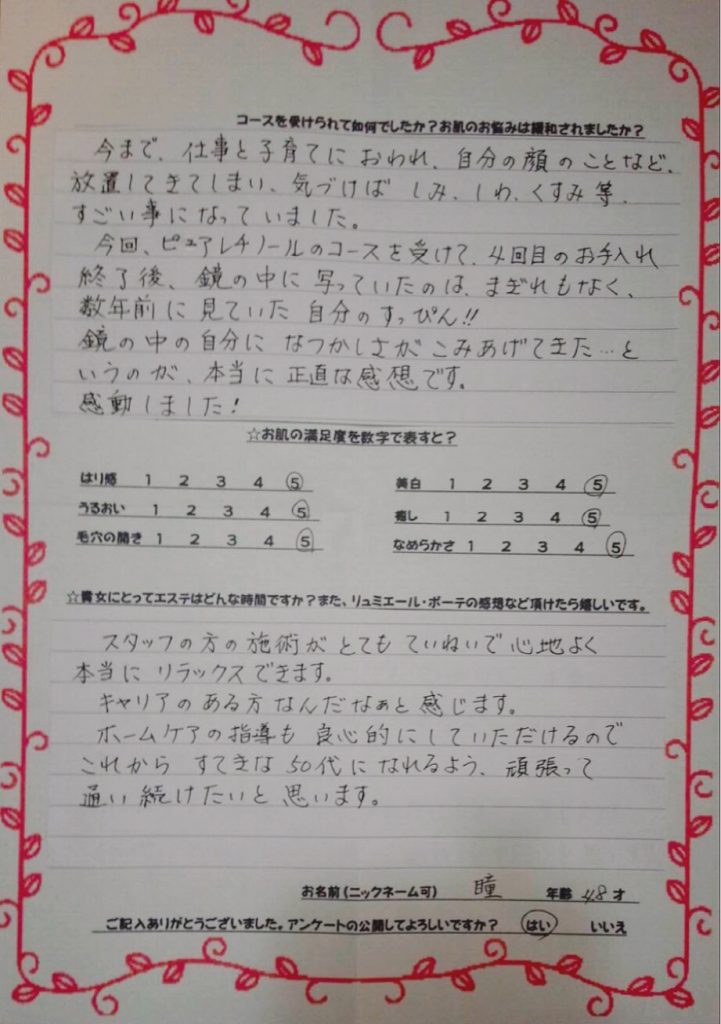 コースを受けられて如何でしたか？お肌のお悩みは緩和されましたか？
今まで、仕事と子育てに おわれ、自分の顔のことなど、
放置してきてしまい、気づけば しみ、しわ、くすみ等、
すごい事になっていました。
今回、ピュアレチノールのコースを受けて、4回目のお手入れ
終了後、鏡の中に写っていたのは、まぎれもなく、
数年前に見ていた 自分のすっぴん!!
鏡の中の自分に なつかしさが こみあげてきた…と
いうのが、本当に 正直な感想です。
感動しました！
☆お肌の満足度を数字で表すと？
はり感 1 2 3 4 5 美白 1 2 3 4 5
うるおい 1 2 3 4 5 癒し 1 2 3 4 5
毛穴の開き 1 2 3 4 5 なめらかさ 1 2 3 4 5
☆貴女にとってエステはどんな時間ですか？また、リュミエール・ボーテの感想など頂けたら嬉しいです。
スタッフの方の施術が とても ていねいで 心地よく
本当に リラックスできます。
キャリアのある方なんだなぁと 感じます。
ホームケアの指導も 良心的にしていただけるので
これから すてきな 50代に なれるよう、頑張って
通い 続けたいと 思います。
お名前（ニックネーム可） 瞳 年齢 48 才
ご記入ありがとうございました。アンケートの公開してよろしいですか？ はい いいえ